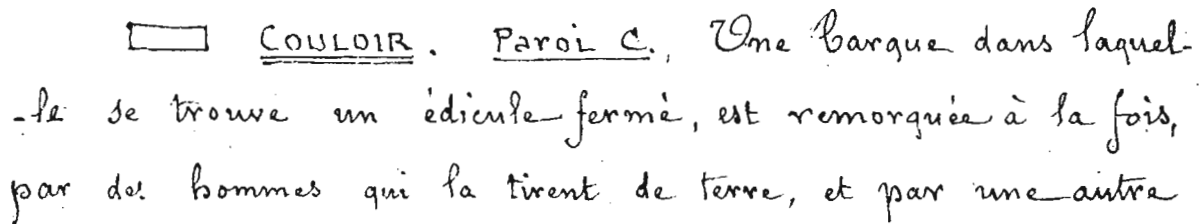 COULOIR. Paroi C., Une barque dans laquel-
-le se trouve un édicule fermé, est remorquée à la fois,
par des hommes qui la tirent de terre, et par une autre